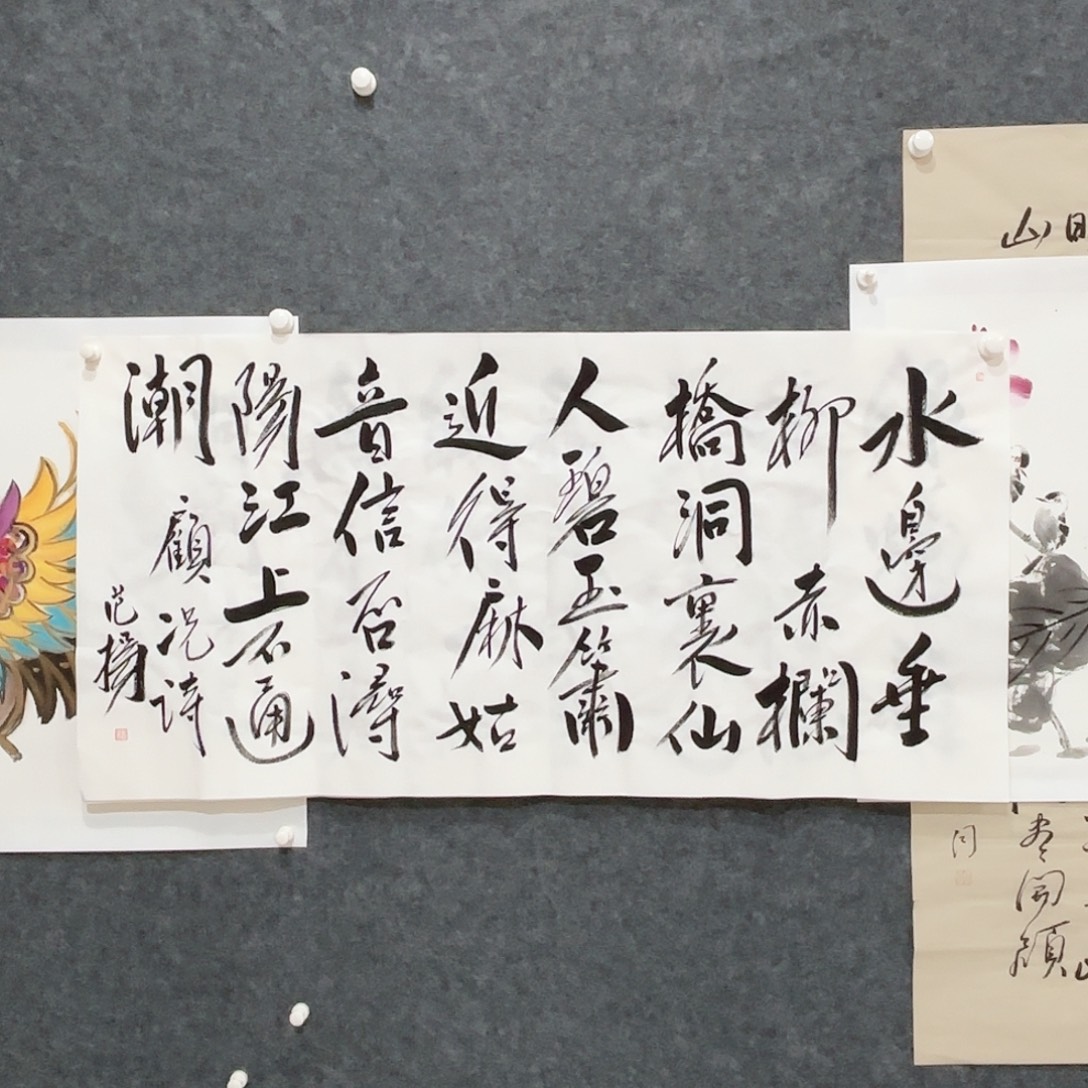 水邊垂
柳赤欄
橋洞裏仙
人碧玉簫
近得麻姑
音信否潯
陽江上不通
潮
顧況詩
范
山
開顏